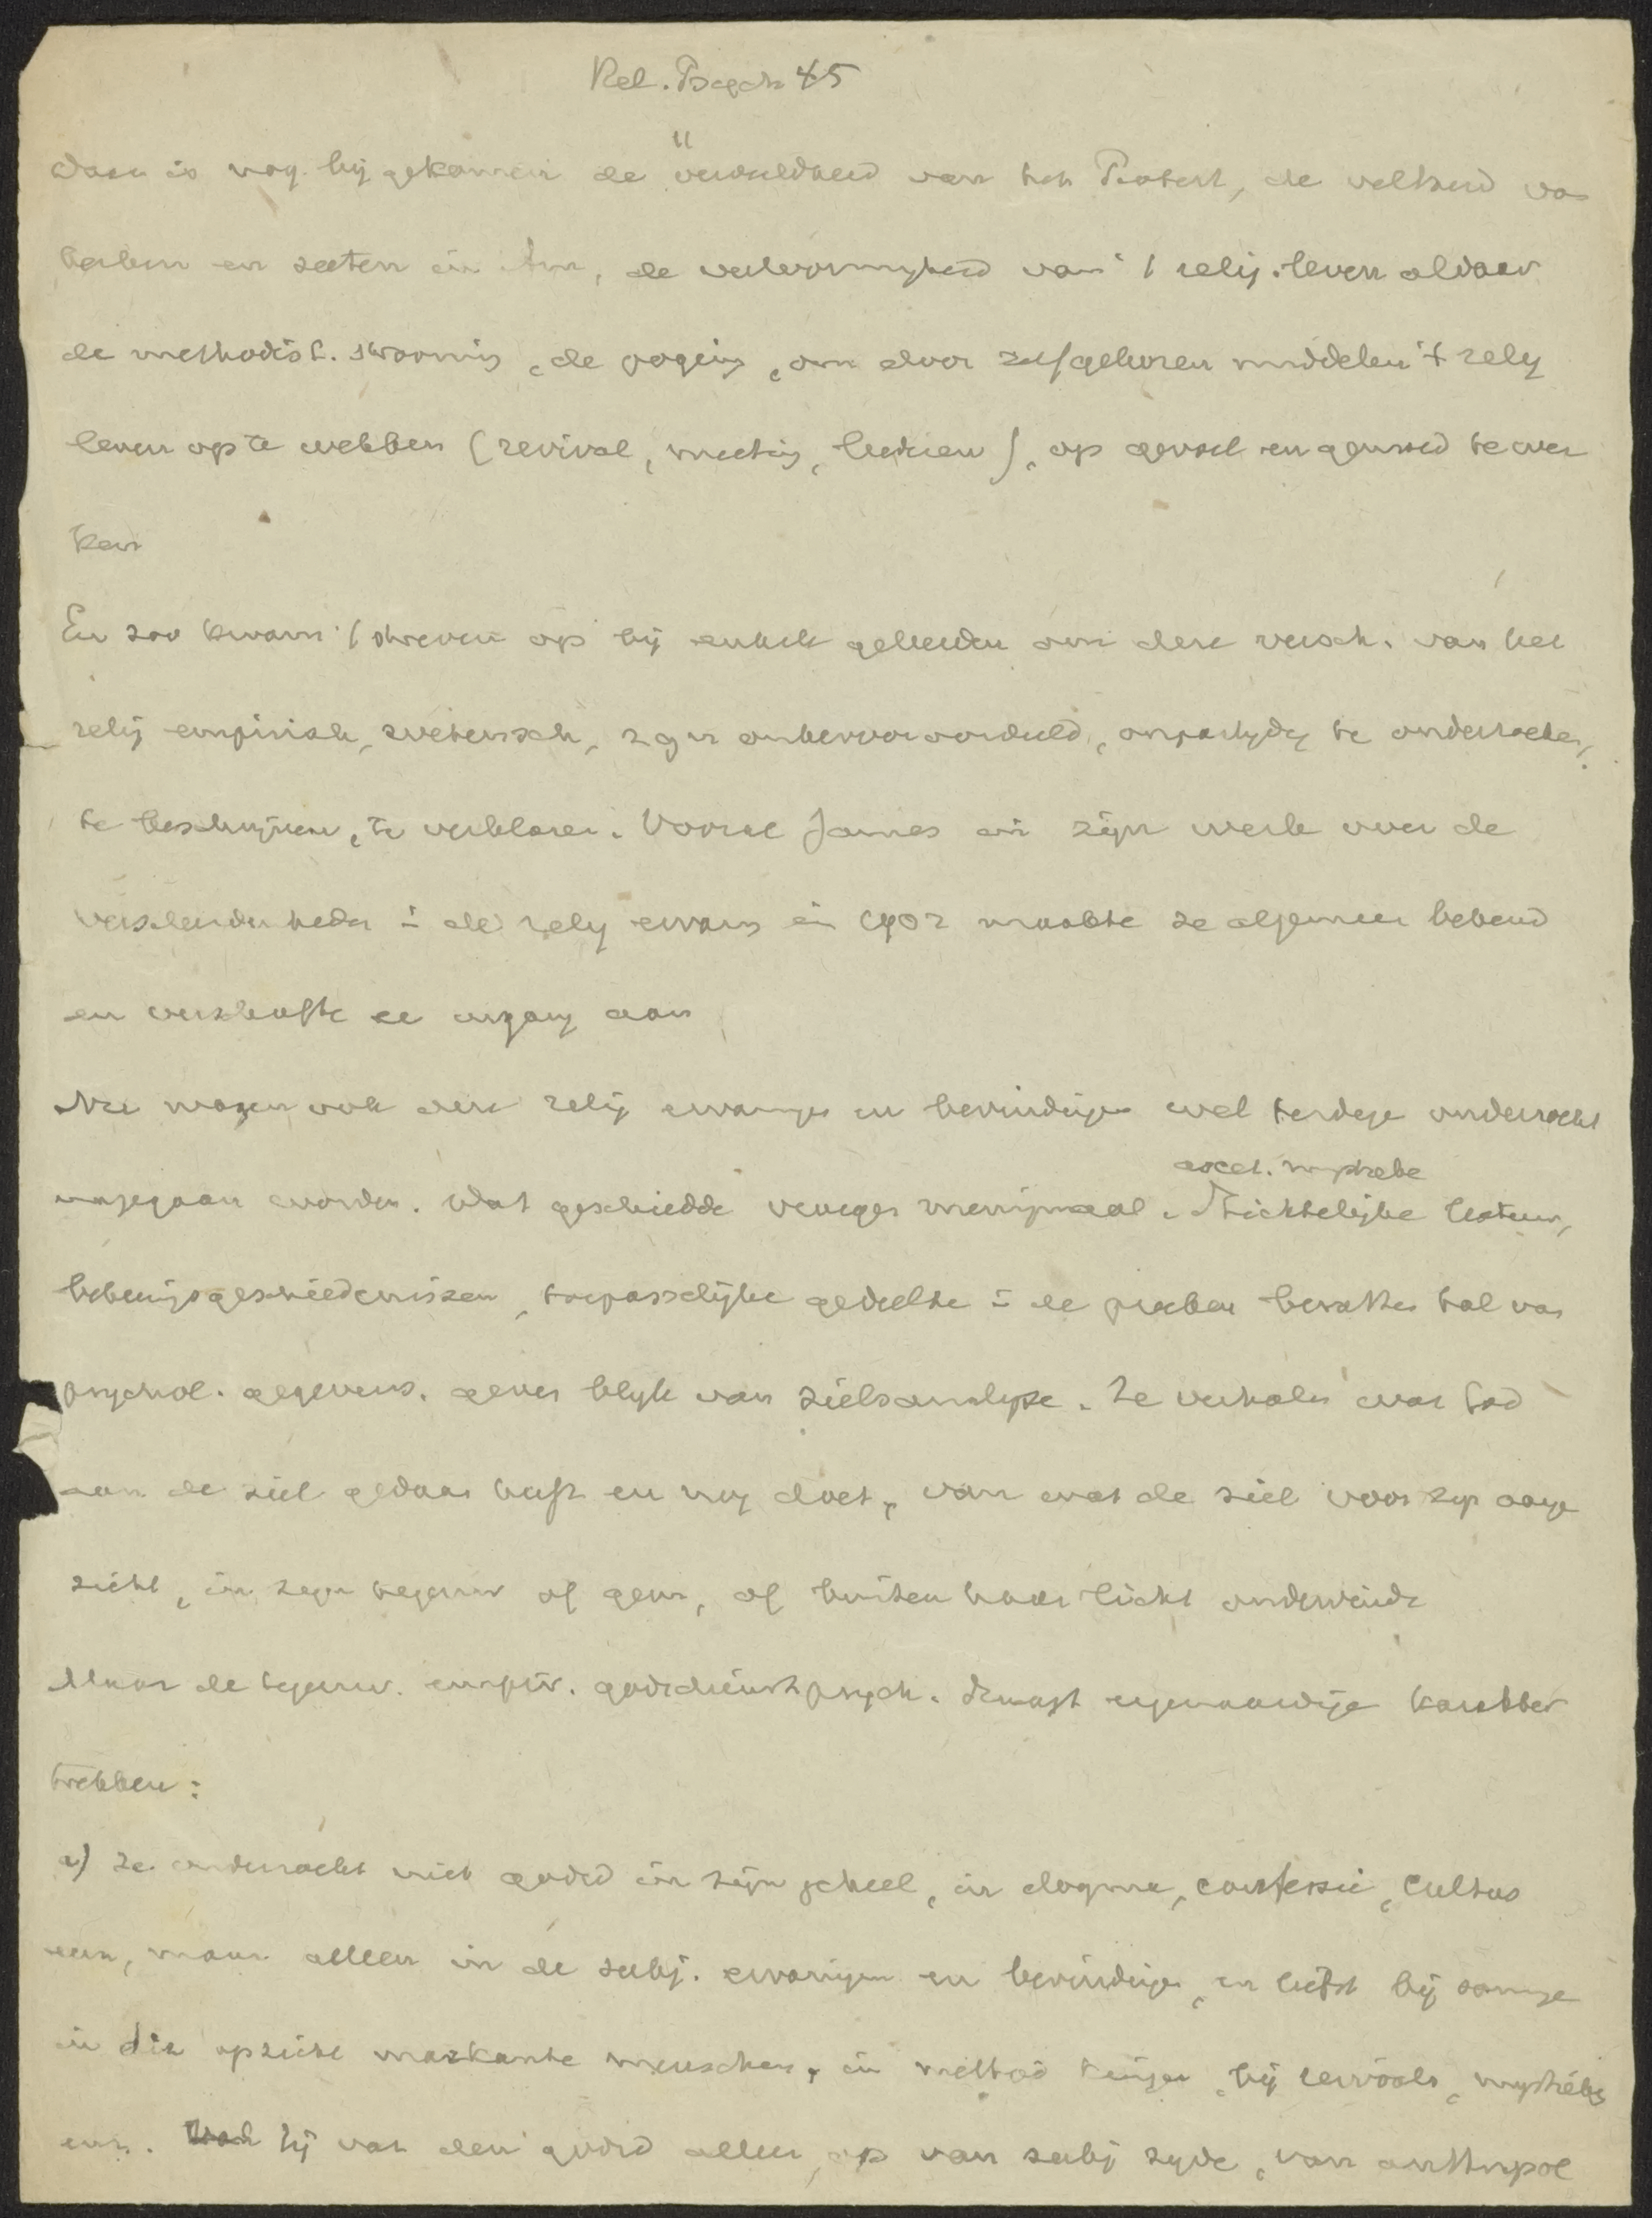 Rel. Psych 45
Daar is nog bij gekomen de verdeeldheid van het Protest, de veelheid van
kerken en secten in Am, de veelvormigheid van 't relig. leven aldaar
de methodist. strooming, de poging, om door zelfgekozen middelen 't relig
leven op te wekken (revival, meeting, liederen), op gevoel en gemoed te wer
ken
En zoo kwam 't streven op bij enkele geleerden om deze versch. van het
relig empirisch, wetensch, zgn onbevooroordeeld, onpartijdig te onderzoeken,
te beschrijven, te verklaren. Vooral James in zijn werk over de
verscheidenheden i de relig ervaring in 1902 maakte ze algemeen bekend
en verschafte ze ingang aan
Nu mogen ook deze relig ervaringen en bevindingen wel terdege onderzocht
nagegaan worden. Dat geschiedde vroeger menigmaal. Stichtelijke ascet. mystieke lectuur,
bekeeringsgeschiedenissen, toepasselijke gedeelte i de preeken bevatten tal van
psychol. gegevens. geven blijk van zielsanalyse. Ze verhalen wat God
aan de ziel gedaan heeft en nog doet, van wat de ziel voor zijn aange
zicht, in zijn tegenw of gem, of buiten haar licht ondervindt
Maar de tegenw. empir. godsdienstpsych. draagt eigenaardige karakter
trekken:
a) Ze onderzoekt niet godsd in zijn geheel, in dogma, confessie, cultus
enz, maar alleen in de subj. ervaringen en bevindingen, en liefst bij sommige
in dit opzicht markante menschen, in method kringen, bij revivals, mystieke
enz. Zij vat den godsd alleen op van subj zijde, van anthropol